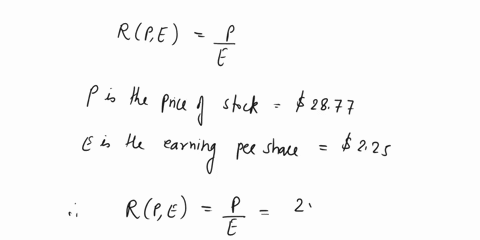 R(P,E) = P/E
P is the price of stock = $28.77
E is the earning per share = $2.25
∴ R(P,E) = P/E = 2